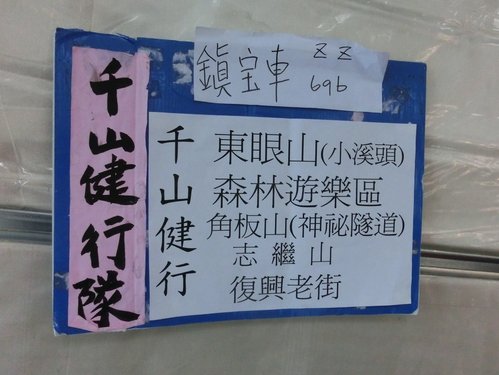 鎮宝車 ZZ
696
千山健行隊
千山健行
東眼山(小溪頭)
森林遊樂區
角板山(神祕隧道)
志繼山
復興老街